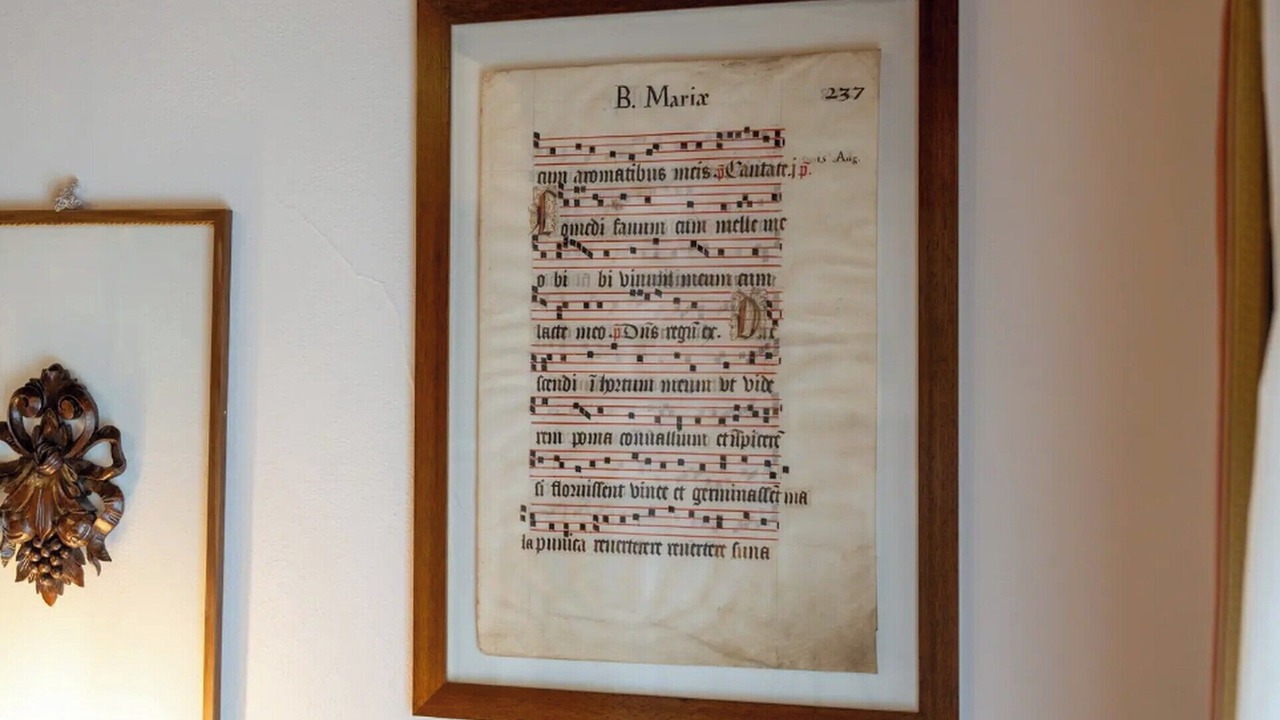 B. Mariæ 237
cum aromatibus meis. p̃ Cantate. j p̃. 15 Aug.
Comedi fauum cum melle me
o bibi vinum meum cum
lacte meo. p̃ Dñs regñ ex. D
scendi ĩ hortum meum vt vide
rem poma conuallium et
si floruissent vinee et germinassẽt ma
la punica reuerterere reuertere suna